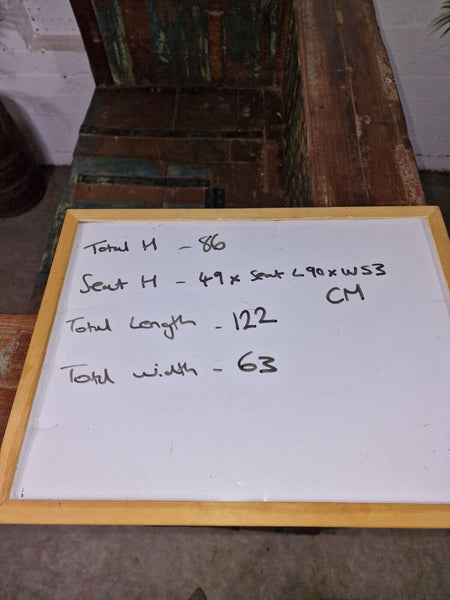 Total H - 86
Seat H - 49 x Seat L 90 x W53
CM
Total Length - 122
Total width - 63